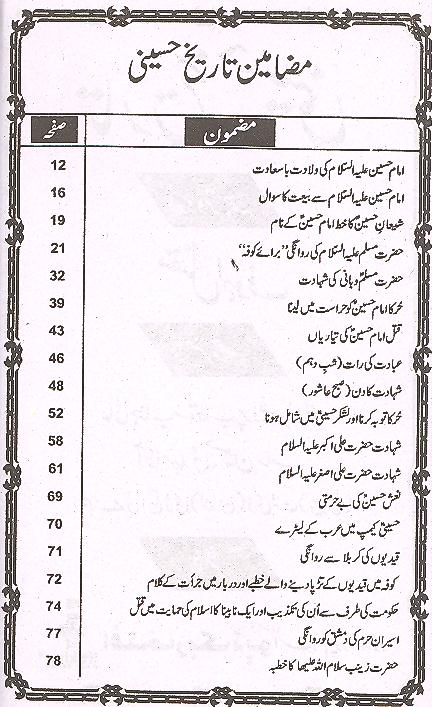 مضامین تاریخ حسینی
مضمون صفحہ
امام حسین علیہ السلام کی ولادت با سعادت 12
امام حسین علیہ السلام سے بیعت کا سوال 16
شیعانِ حسینؑ کا خط امام حسینؑ کے نام 19
حضرت مسلم علیہ السلام کی روانگی "برائے کوفہ" 21
حضرت مسلمؑ وہانی کی شہادت 32
حُر کا امام حسینؑ کو حراست میں لینا 39
قتل امام حسینؑ کی تیاریاں 43
عبادت کی رات (شبِ دہم) 46
شہادت کا دن (صبح عاشور) 48
حُر کا توبہ کرنا اور لشکر حسینیؑ میں شامل ہونا 52
شہادت حضرت علی اکبر علیہ السلام 58
شہادت حضرت علی اصغر علیہ السلام 61
نعش حسینؑ کی بے حرمتی 69
حسینیؑ کیمپ میں عرب کے لیٹرے 70
قیدیوں کی کربلا سے روانگی 71
کوفہ میں قیدیوں کے تڑپا دینے والے خطبے اور دربار میں جرأت کے کلام 72
حکومت کی طرف سے اُن کی تکذیب اور ایک نابینا کا اسلام کی حمایت میں قتل 74
اسیران حرم کی دمشق کو روانگی 77
حضرت زینب سلام اللہ علیھا کا خطبہ 78